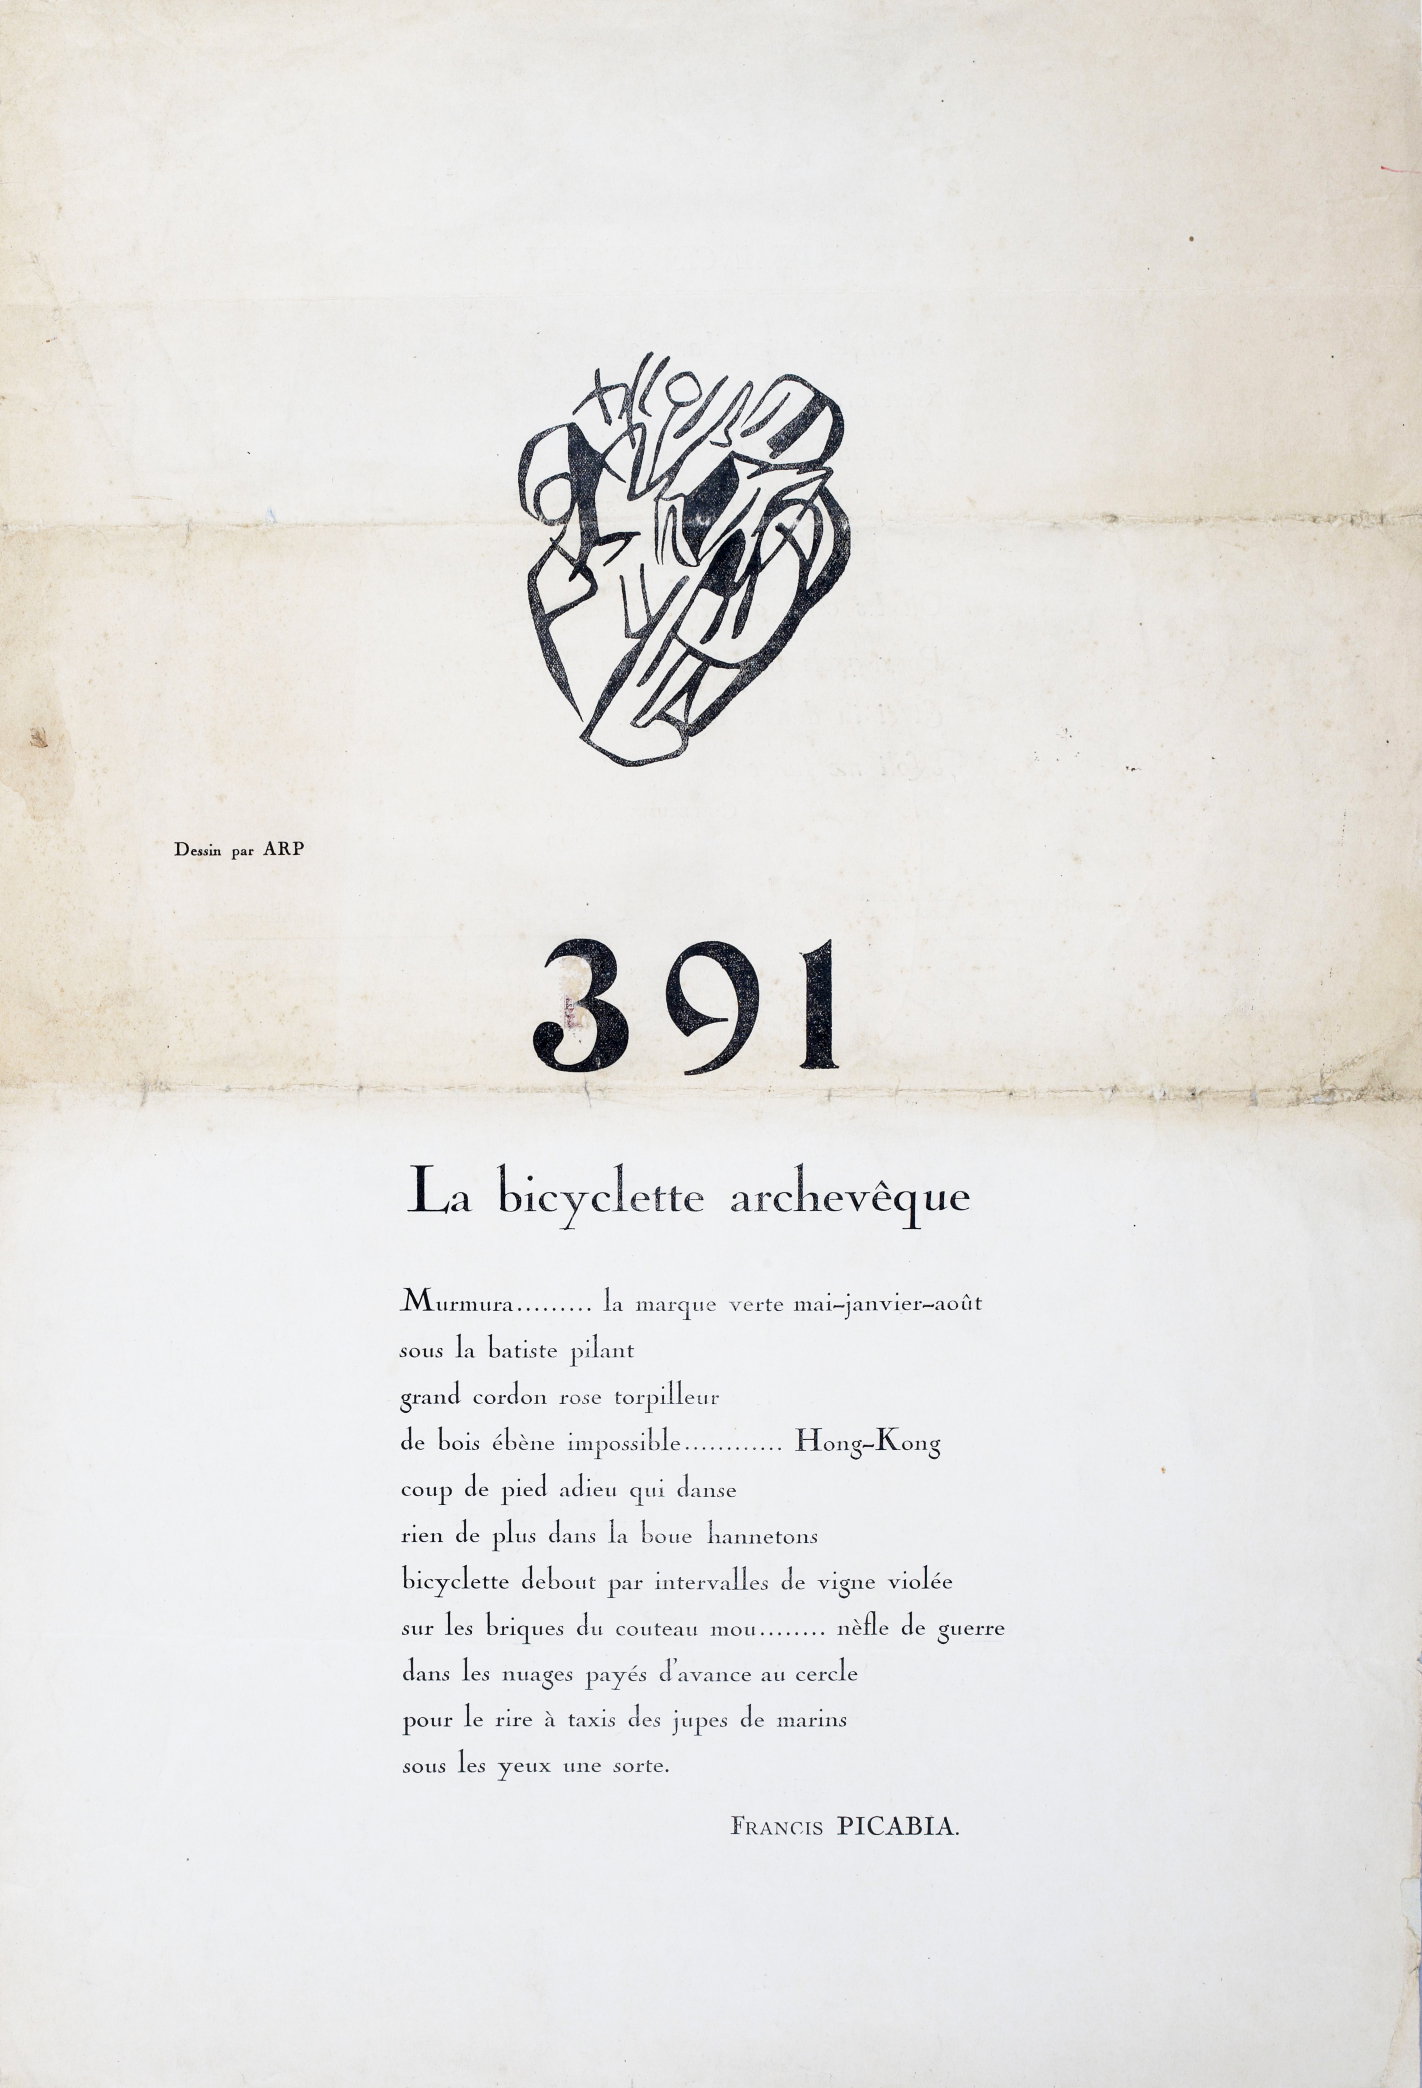 Dessin par ARP
391
La bicyclette archevêque
Murmura......... la marque verte mai-janvier-août
sous la batiste pilant
grand cordon rose torpilleur
de bois ébène impossible............ Hong-Kong
coup de pied adieu qui danse
rien de plus dans la boue hannetons
bicyclette debout par intervalles de vigne violée
sur les briques du couteau mou........ nèfle de guerre
dans les nuages payés d'avance au cercle
pour le rire à taxis des jupes de marins
sous les yeux une sorte.
FRANCIS PICABIA.